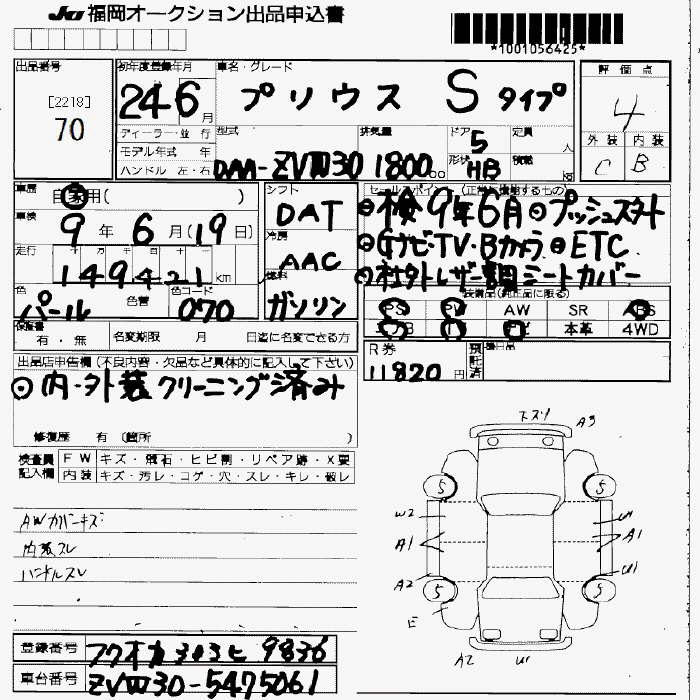 JU 福岡オークション出品申込書
*1001056425*
出品番号
[2218]
70
初年度登録年月
24 6 月
車名・グレード
プリウス S タイプ
評価点
4
外装 内装
C B
ディーラー・並行
モデル年式 年
ハンドル 左・右
型式
DAA-ZVW30
排気量
1800 cc
ドア 5
形状 HB
定員 人
積載 kg
車歴
自家用( )
車検
9 年 6 月(19日)
走行
十万 万 千 百 十 一
149421 km
色
パール
色替
色コード
070
シフト
DAT
冷房
AAC
燃料
ガソリン
セールスポイント (正常に機能するもの)
⊙検9年6月⊙プッシュスタート
⊙Gナビ・TV・Bカメラ⊙ETC
⊙社外レザー調シートカバー
装備品(純正品に限る)
PS PW AW SR ABS
エアB TV ナビ 本革 4WD
保証書
有・無
名変期限 月 日迄に名変できる方
R券
11820 円
預託済
後日品
出品店申告欄(不良内容・欠品など具体的に記入して下さい)
⊙内・外装クリーニング済み
修復歴 有 (箇所 )
検査員記入欄
FW キズ・飛石・ヒビ割・リペア跡・X要
内装 キズ・汚レ・コゲ・穴・スレ・キレ・破レ
AWカバーキズ
内張スレ
ハンドルスレ
スズリ A3
5 5
W2 W1
A1 A1
A2 W1
5 5
E
A2 W1
登録番号
フクオカ 303 ヒ 9836
車台番号
ZVW30-5475061